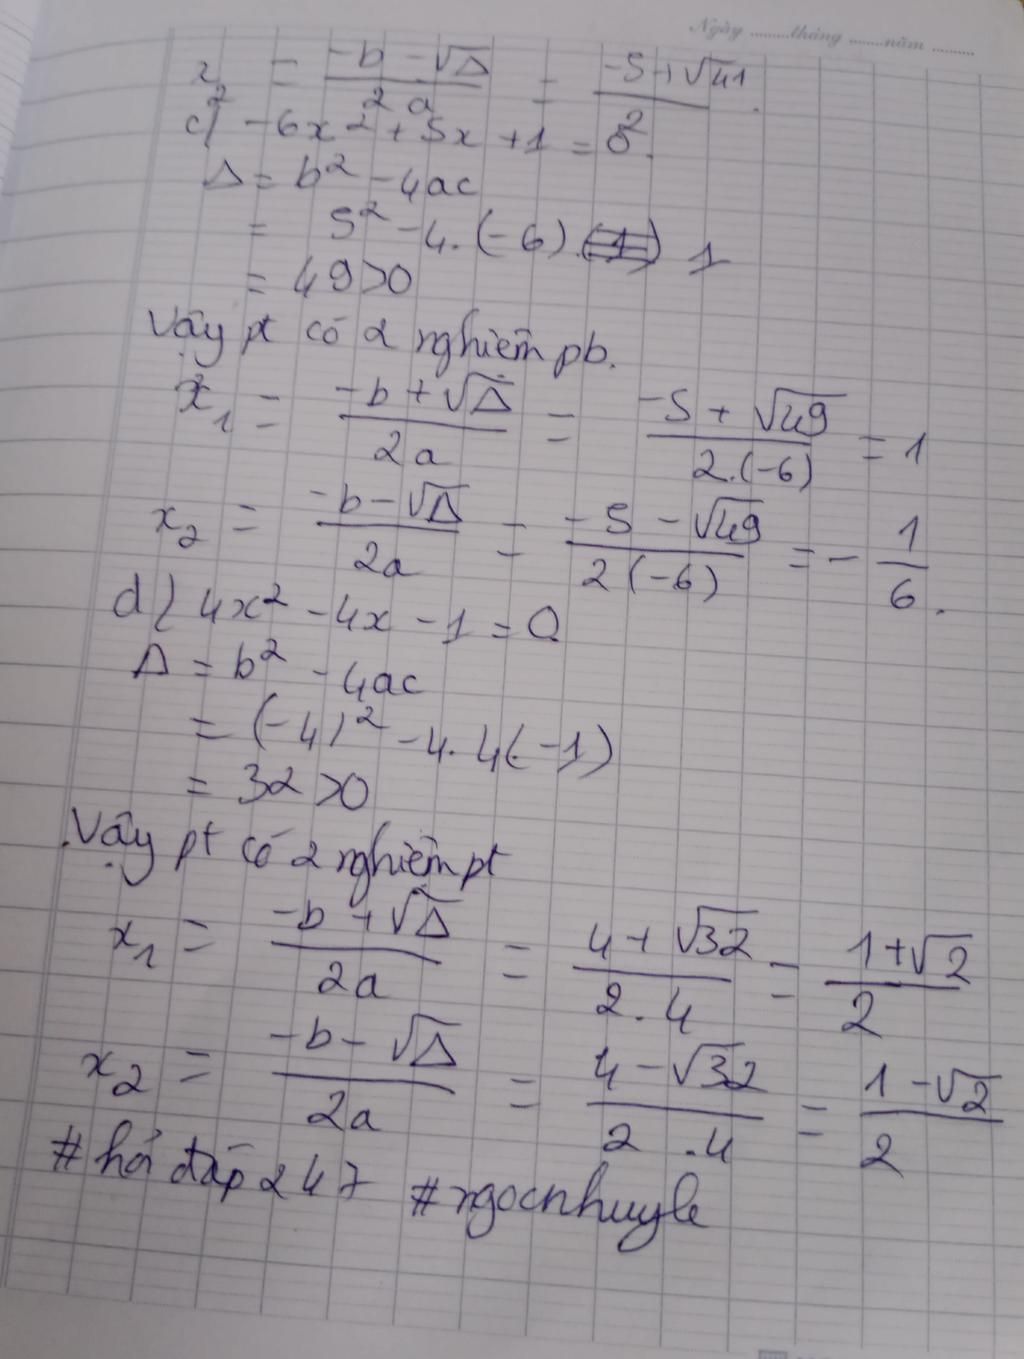 Ngày ........tháng ........năm ..........
x₂ = (-b - √Δ)/(2a) = (-5 + √41)/2.
c) -6x² + 5x + 1 = 0.
Δ = b² - 4ac
= 5² - 4. (-6). 1
= 49 > 0
Vậy pt có 2 nghiệm pb.
x₁ = (-b + √Δ)/(2a) = (-5 + √49)/(2.(-6)) = 1
x₂ = (-b - √Δ)/(2a) = (-5 - √49)/(2(-6)) = - 1/6.
d) 4x² - 4x - 1 = 0
Δ = b² - 4ac
= (-4)² - 4. 4(-1)
= 32 > 0
Vậy pt có 2 nghiệm pt
x₁ = (-b + √Δ)/(2a) = (4 + √32)/(2.4) = (1 + √2)/2
x₂ = (-b - √Δ)/(2a) = (4 - √32)/(2.4) = (1 - √2)/2
# hỏi đáp 247 # ngocnhuyle